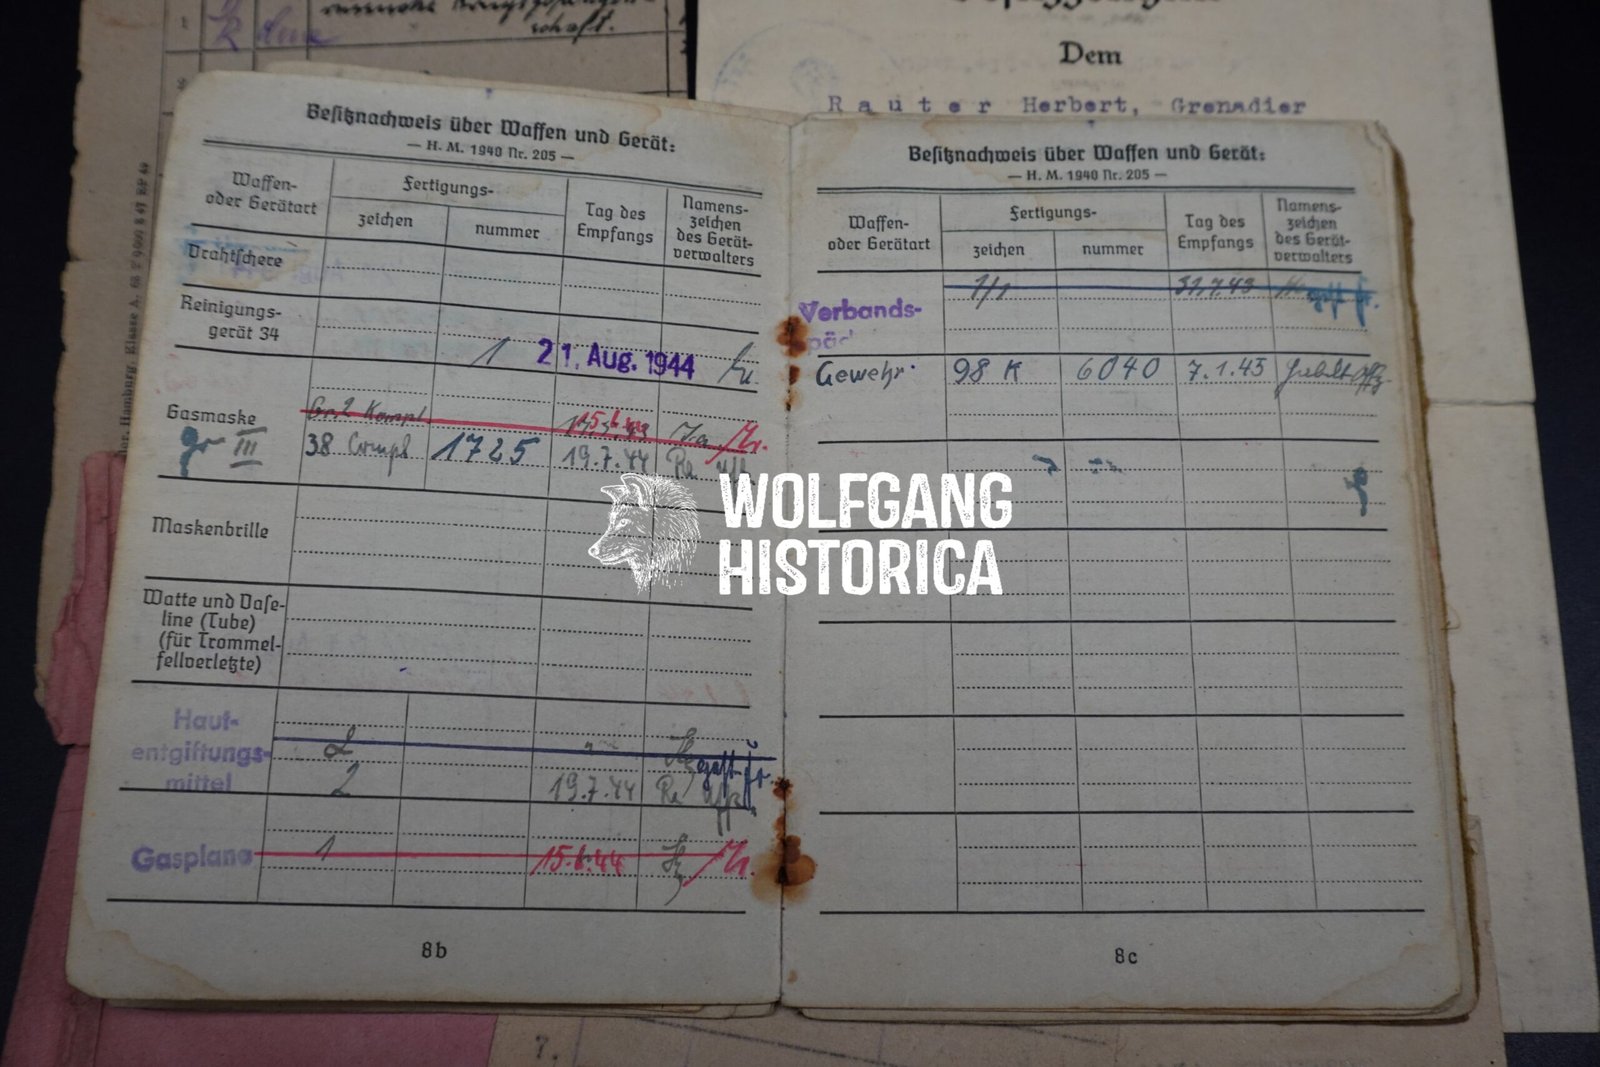 schaft.
Dem
Rauter Herbert, Grenadier
Besitznachweis über Waffen und Gerät:
— H. M. 1940 Nr. 205 —
Waffen- oder Gerätart
Fertigungs-
zeichen
nummer
Tag des Empfangs
Namens-
zeichen
des Gerät-
verwalters
Drahtschere
Reinigungs-
gerät 34
1 21. Aug. 1944
Gasmaske
gr III
38 Compl 1725 19.7.44 Re
Maskenbrille
Watte und Vase-
line (Tube)
(für Trommel-
fellverletzte)
Haut-
entgiftungs-
mittel
2
2 19.7.44 Re
Gasplane 1 15.6.44
8b
Besitznachweis über Waffen und Gerät:
— H. M. 1940 Nr. 205 —
Waffen-
oder Gerätart
Fertigungs-
zeichen
nummer
Tag des
Empfangs
Namens-
zeichen
des Gerät-
verwalters
31.7.43
Verbands-
päc
Gewehr 98 K 6040 7.1.45
8c
WOLFGANG
HISTORICA
7.